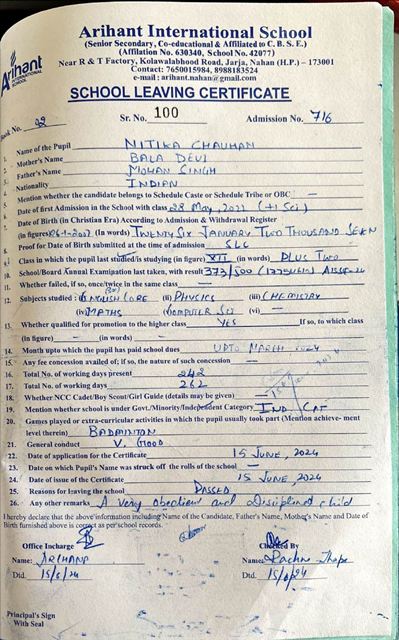 Arihant International School
(Senior Secondary, Co-educational & Affiliated to C. B. S. E.)
(Affilation No. 630340, School No. 42077)
Near R & T Factory, Kolawalabhood Road, Jarja, Nahan (H.P.) – 173001
Contact: 7650015984, 8988183524
e-mail : arihant.nahan@gmail.com
Arihant
INTERNATIONAL
SCHOOL
SCHOOL LEAVING CERTIFICATE
Book No. 02 Sr. No. 100 Admission No. 716
1. Name of the Pupil NITIKA CHAUHAN
2. Mother's Name BALA DEVI
3. Father's Name MOHAN SINGH
4. Nationality INDIAN
5. Mention whether the candidate belongs to Schedule Caste or Schedule Tribe or OBC —
6. Date of first Admission in the School with class 28 May, 2022 (+1 Sci)
7. Date of Birth (in Christian Era) According to Admission & Withdrawal Register
(in figures) 26-1-2007 (In words) TWENTY SIX JANUARY TWO THOUSAND SEVEN
8. Proof for Date of Birth submitted at the time of admission SLC
9. Class in which the pupil last studied/is studying (in figure) XII (in words) PLUS TWO
10. School/Board Annual Examination last taken, with result 373/500
11. Whether failed, if so, once/twice in the same class —
12. Subjects studied : (i) ENGLISH CORE (ii) PHYSICS (iii) CHEMISTRY
(iv) MATHS (v) COMPUTER SCI (vi) —
13. Whether qualified for promotion to the higher class YES If so, to which class
(in figure) — (in words) —
14. Month upto which the pupil has paid school dues UPTO MARCH 2024
15. Any fee concession availed of; If so, the nature of such concession —
16. Total No. of working days present 242
17. Total No. of working days 262
18. Whether NCC Cadet/Boy Scout/Girl Guide (details may be given) —
19. Mention whether school is under Govt./Minority/Independent Category IND. CAT
20. Games played or extra-curricular activities in which the pupil usually took part (Mention achieve- ment
level therein) BADMINTON
21. General conduct V. GOOD
22. Date of application for the Certificate 15 JUNE, 2024
23. Date on which Pupil's Name was struck off the rolls of the school —
24. Date of issue of the Certificate 15 JUNE, 2024
25. Reasons for leaving the school PASSED
26. Any other remarks A very obedient and Disciplined child
I hereby declare that the above information including Name of the Candidate, Father's Name, Mother's Name and Date of
Birth furnished above is correct as per school records.
Office Incharge Checked By
Name: ARCHANA Name: Rachna Thapa
Dtd. 15/6/24 Dtd. 15/6/24
Principal's Sign
With Seal